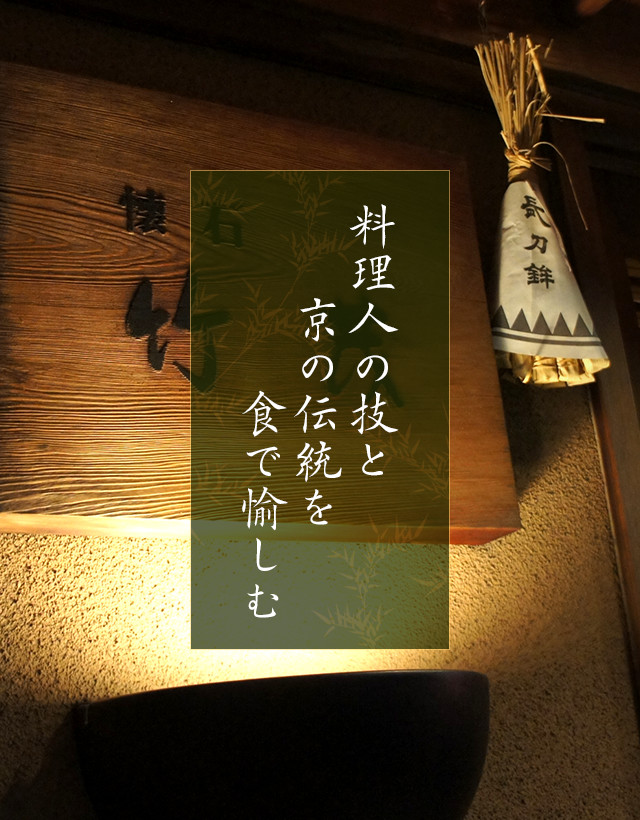 料理人の技と
京の伝統を
食で愉しむ
懐石
竹
長刀鉾